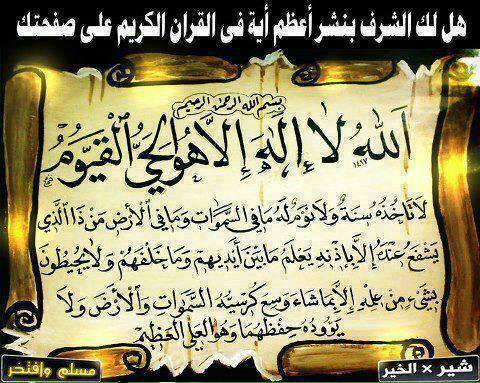 هل لك الشرف بنشر أعظم أية فى القران الكريم على صفحتك
بسم الله الرحمن الرحيم
ٱللَّهُ لَا إِلَٰهَ إِلَّا هُوَ الْحَيُّ الْقَيُّومُ
لَا تَأْخُذُهُ سِنَةٌ وَلَا نَوْمٌ لَهُ مَا فِي السَّمَٰوَاتِ وَمَا فِي الْأَرْضِ مَنْ ذَا الَّذِي
يَشْفَعُ عِنْدَهُ إِلَّا بِإِذْنِهِ يَعْلَمُ مَا بَيْنَ أَيْدِيهِمْ وَمَا خَلْفَهُمْ وَلَا يُحِيطُونَ
بِشَيْءٍ مِنْ عِلْمِهِ إِلَّا بِمَا شَاءَ وَسِعَ كُرْسِيُّهُ السَّمَٰوَاتِ وَالْأَرْضَ وَلَا
يَئُودُهُ حِفْظُهُمَا وَهُوَ الْعَلِيُّ الْعَظِيمُ
شير × الخير
مسلم وافتخر